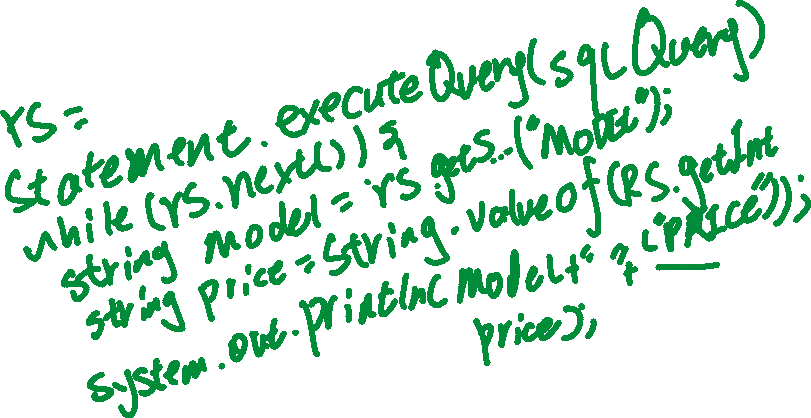 rs =
statement.executeQuery(sqlQuery)
while (rs.next()) {
string model = rs.getS...("MODEL");
string price = String.valueof(RS.getInt
("PRICE"));
system.out.println(model+" "+
price);